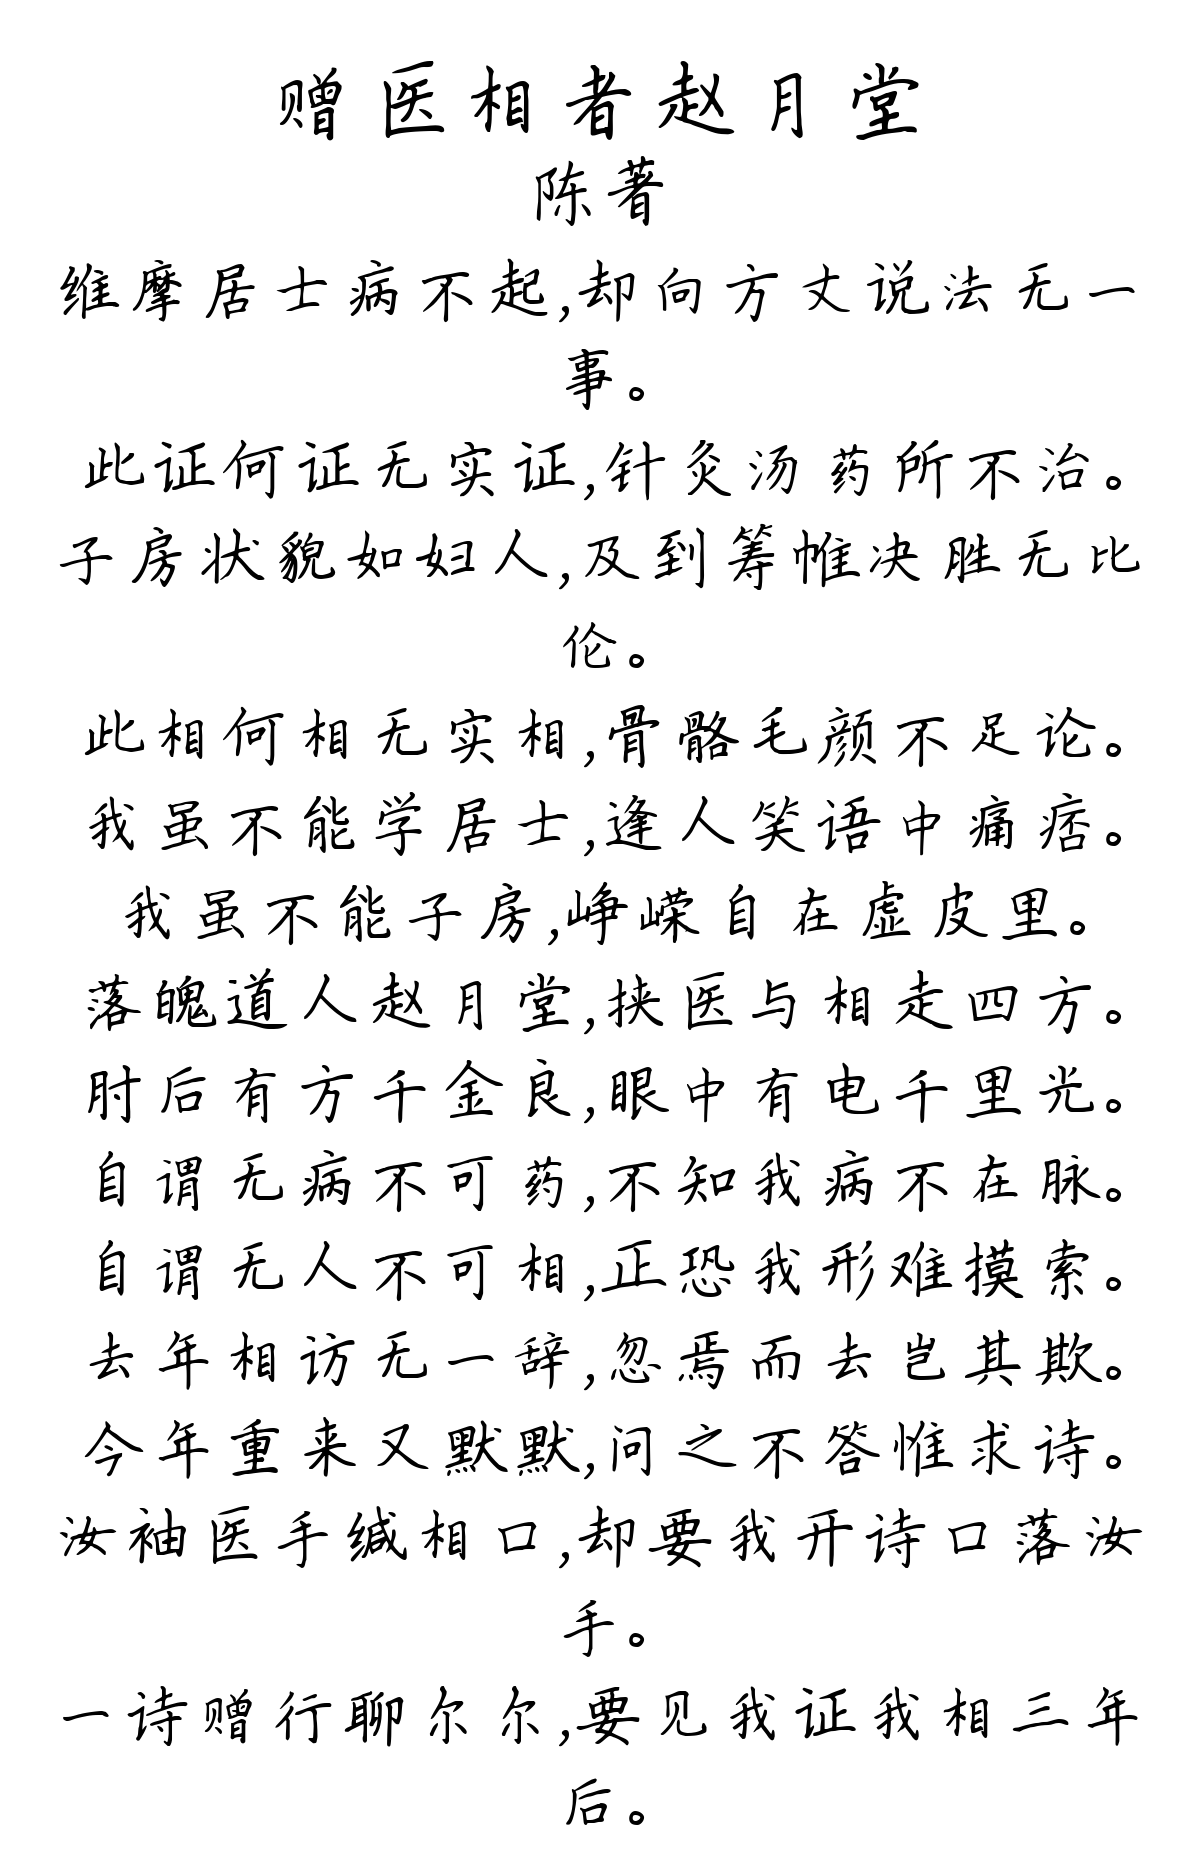 赠医相者赵月堂
陈著
维摩居士病不起,却向方丈说法无一
事。
此证何证无实证,针灸汤药所不治。
子房状貌如妇人,及到筹帷决胜无比
伦。
此相何相无实相,骨骼毛颜不足论。
我虽不能学居士,逢人笑语中痛痞。
我虽不能子房,峥嵘自在虚皮里。
落魄道人赵月堂,挟医与相走四方。
肘后有方千金良,眼中有电千里光。
自谓无病不可药,不知我病不在脉。
自谓无人不可相,正恐我形难摸索。
去年相访无一辞,忽焉而去岂其欺。
今年重来又默默,问之不答惟求诗。
汝袖医手缄相口,却要我开诗口落汝
手。
一诗赠行聊尔尔,要见我证我相三年
后。